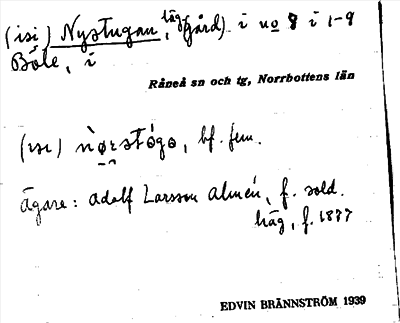 (isi) Nystugan, läg(gård) i no 8 i 1-9
Böle, i
Råneå sn och tg, Norrbottens län
(ısı) nørstógo, bf. fem.
Ägare: Adolf Larsson Almén, f. sold.
häg, f. 1877
EDVIN BRÄNNSTRÖM 1939